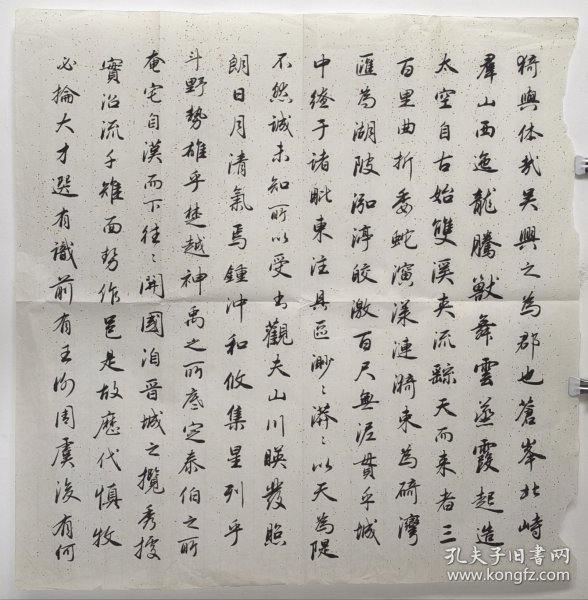 猗與休哉吳興之為郡也蒼峯北峙
羣山西迤龍騰獸舞雲蒸霞起造
太空自古始雙溪夾流繇天而来者三
百里曲折委蛇演漾漣漪束為碕灣
匯為湖陂泓渟皎澈百尺無泥貫乎城
中繚于諸毗東注具區渺〻漭〻以天為隄
不然誠未知所以受出觀夫山川暎發照
朗日月清氣焉鍾沖和攸集星列乎
斗野勢雄乎楚越神禹之所底定泰伯之所
奄宅自漢而下往〻開國洎晉城之攬秀據
實沿流千雉面勢作邑是故歷代慎牧
必掄大才選有識前有王謝周虞後有何
孔夫子旧书网
www.kongfz.com